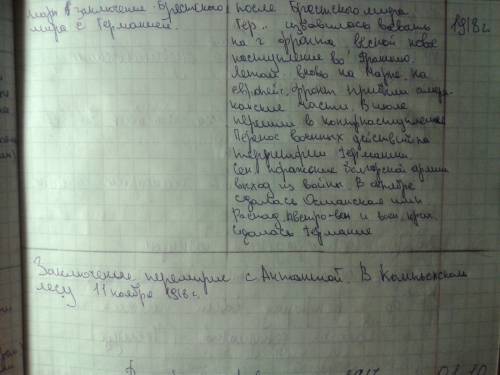 март заключение Брестского
мира с Германией.
после Брестского мира
Гер. избавилась воевать
на 2 фронта весной новое
наступление во Францию.
Летом вновь на Марне. на
европейс. фронт прибыли амери-
канские части. В июле
перешли в контрнаступление
Перенос военных действий на
территорию Германии
Сен поражение болгарской армии
выход из войны. В октябре
сдалась Османская имп
Распад Австро-вен и воен. крах.
Сдалась Германия
1918 г.
Заключение перемирия с Антантой. В Компьенском
лесу 11 ноября 1918 г.